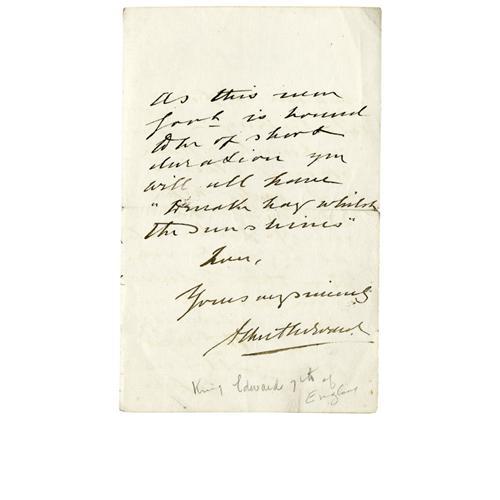 As this new
Govt. is bound
to be of short
duration you
will all have
"to make hay whilst
the sun shines"
Yours very sincerely
Albert Edward
King Edward 7th of
England